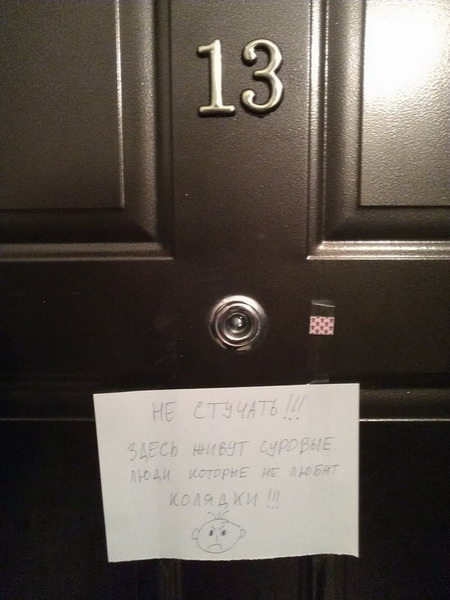 13
НЕ СТУЧАТЬ!!!
ЗДЕСЬ ЖИВУТ СУРОВЫЕ
ЛЮДИ КОТОРЫЕ НЕ ЛЮБЯТ
КОЛЯДКИ!!!